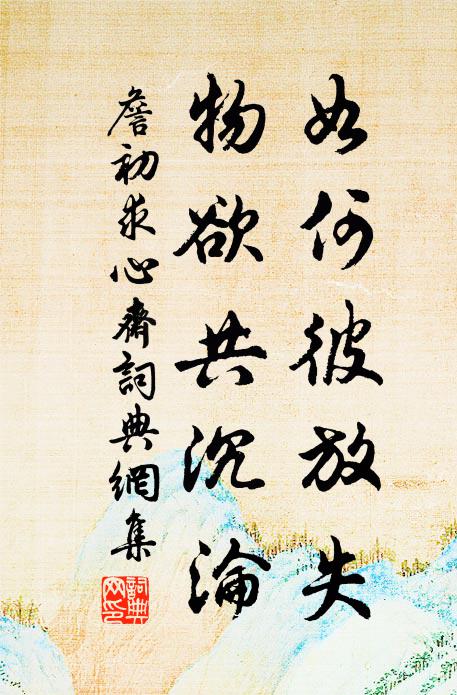 如何彼放失
物欲共沉淪
詹初求心齋詞典網集
詞典